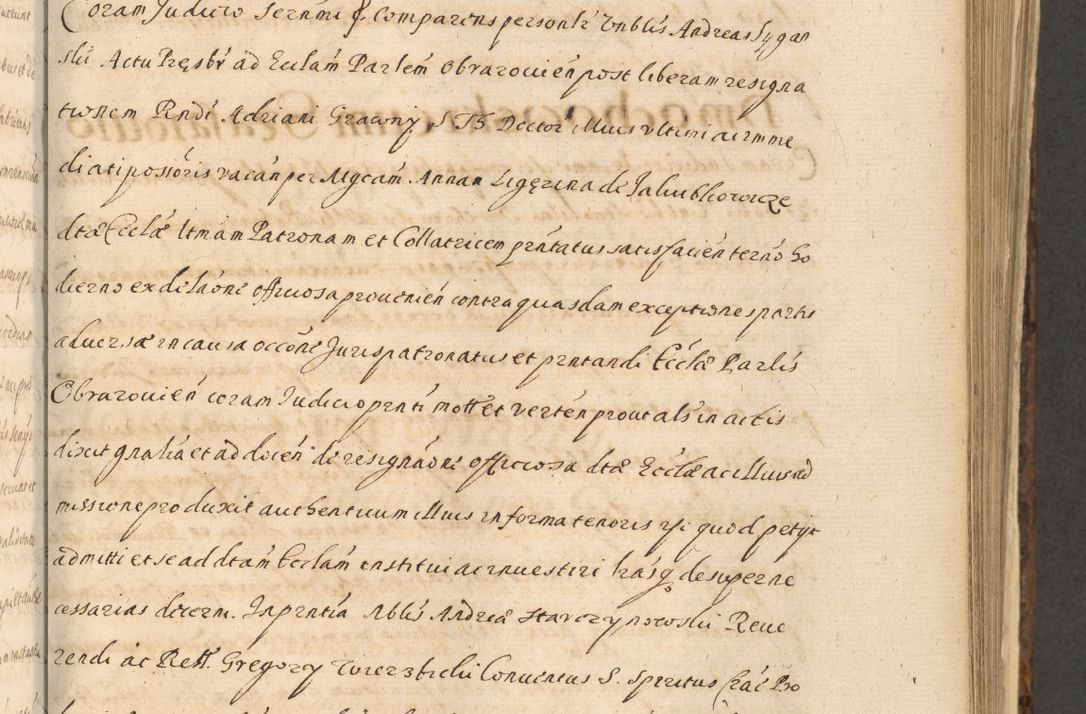 Coram Judicio Sermi & Comparens personlr Vnblis Andreas Sygan
ski Actu Pręsbr ad Ecclam Parlem Obrazouien post liberam resigna
tionem Rndi Adriani Grawny S Th Doctor illius vltimi ac imme
diati possoris vacan per Mgcam Annam de Jakubkowicze
dtæ Ecclæ ltmam Patronam et Collatricem prntatus satisfacien terno ho
dierno ex delaone officiosa prouenien contra quasdam exceptiones partis
aduersæ in causa occone Juris patronatus et prntandi Ecclæ Parlis
Obrazouien coram Judicio prnti mott et verten prout als in actis
dixit gnalia et ad docen de resignaone officiosa dtæ Ecclæ ac illius ad
missione produxit authenticum illius in forma tenoris rsi quod petijt
admitti et se ad dtam Ecclam institui ac inuestiri lrasq desuper ne
cessarias decerni. In prntia Nblis Andreæ Starczynowski Reue
rendi ac Rett. Gregory Conuentus S. Spiritus Crac Pro